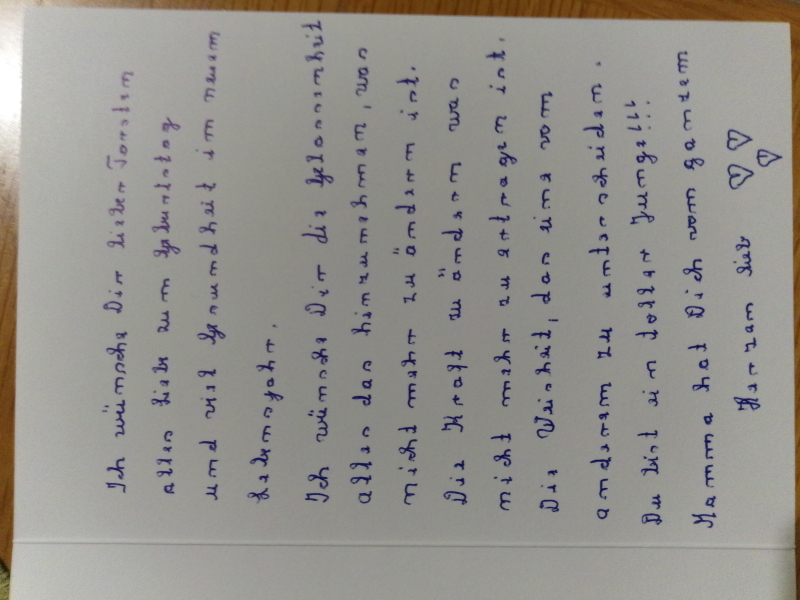 Ich wünsche Dir lieber Torsten
alles liebe zum Geburtstag
und viel Gesundheit im neuem
Lebensjahr.
Ich wünsche Dir die Gelassenheit
alles das hinzunehmen, was
nicht mehr zu ändern ist.
Die Kraft zu ändern was
nicht mehr zu ertragen ist.
Die Weisheit, das eine vom
anderem zu unterscheiden.
Du bist ein toller Junge!!!
Mamma hat Dich vom ganzem
Herzen lieb ♡♡♡